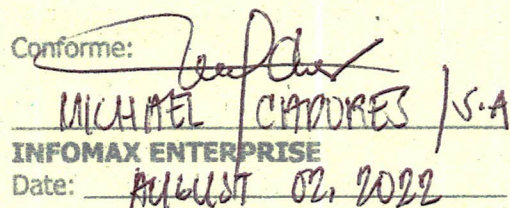 Conforme:
MICHAEL CIADORES / S.A
INFOMAX ENTERPRISE
Date: AUGUST 02, 2022